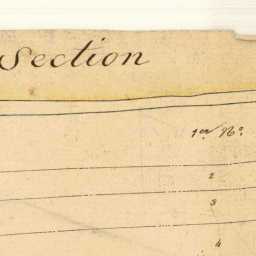 Section
1er No
2
3
4